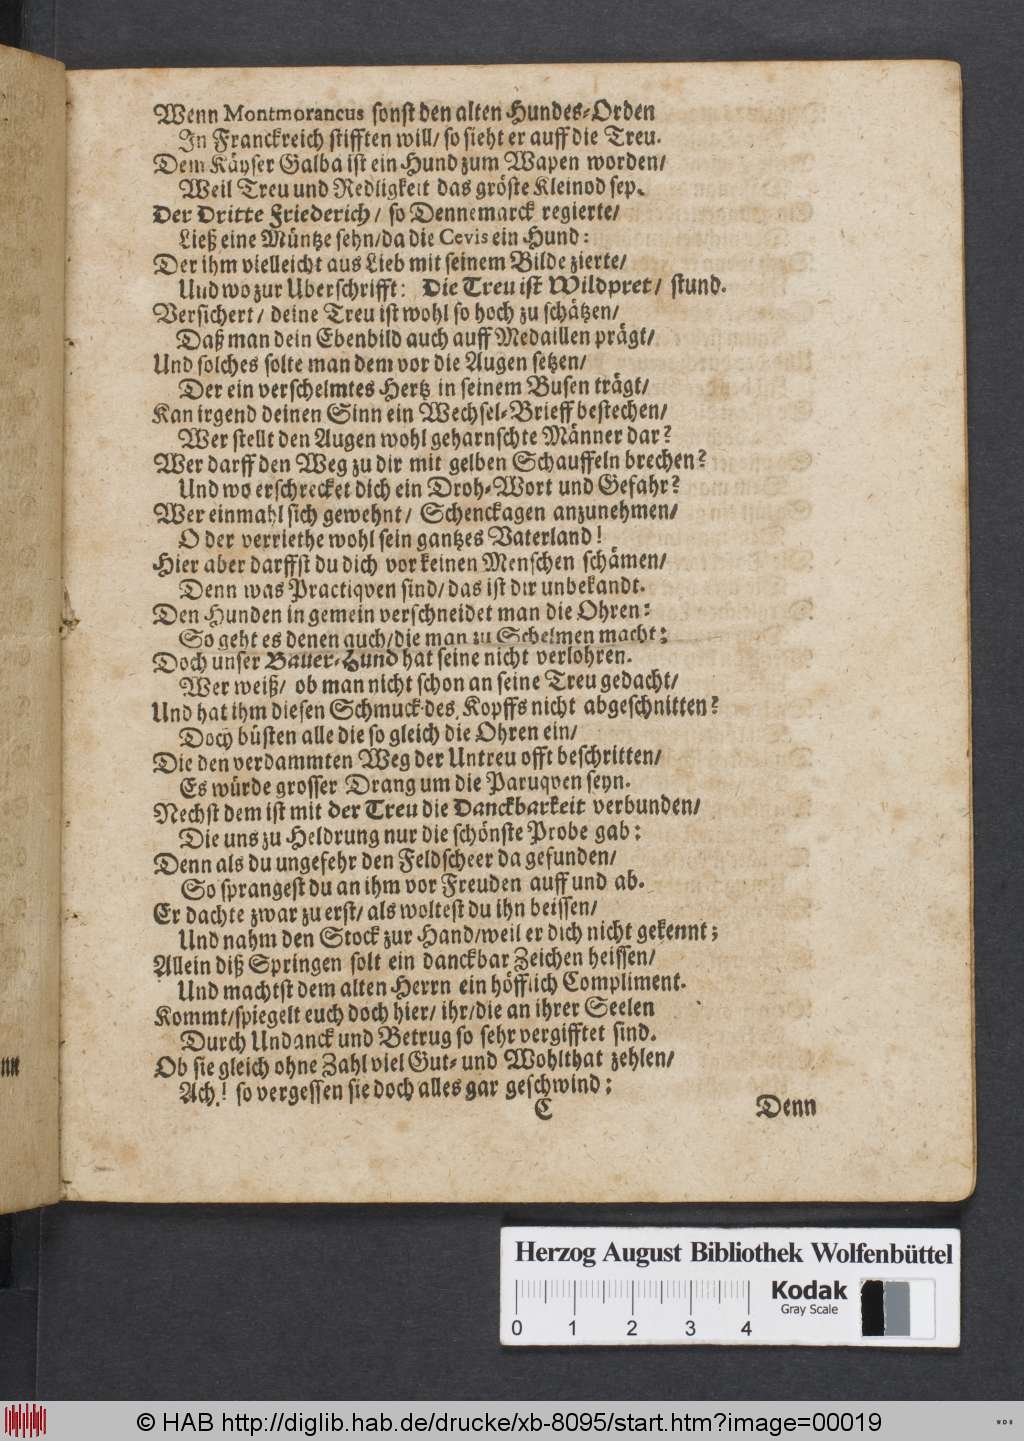 Wenn Montmorancus sonst den alten Hundes-Orden
In Franckreich stifften will/ so sieht er auff die Treu.
Dem Käyser Galba ist ein Hund zum Wapen worden/
Weil Treu und Redligkeit das gröste Kleinod sey.
Der Dritte Friederich/ so Dennemarck regierte/
Ließ eine Müntze sehn/ da die Cevis ein Hund:
Der ihm vielleicht aus Lieb mit seinem Bilde zierte/
Und wo zur Uberschrifft: Die Treu ist Wildpret/ stund.
Versichert/ deine Treu ist wohl so hoch zu schätzen/
Daß man dein Ebenbild auch auff Medaillen prägt/
Und solches solte man dem vor die Augen setzen/
Der ein verschelmtes Hertz in seinem Busen trägt/
Kan irgend deinen Sinn ein Wechsel-Brieff bestechen/
Wer stellt den Augen wohl geharnschte Männer dar?
Wer darff den Weg zu dir mit gelben Schauffeln brechen?
Und wo erschrecket dich ein Droh-Wort und Gefahr?
Wer einmahl sich gewehnt/ Schenckagen anzunehmen/
O der verriethe wohl sein gantzes Vaterland!
Hier aber darffst du dich vor keinen Menschen schämen/
Denn was Practiqven sind/ das ist dir unbekandt.
Den Hunden in gemein verschneidet man die Ohren:
So geht es denen auch/ die man zu Schelmen macht:
Doch unser Bauer-Hund hat seine nicht verlohren.
Wer weiß/ ob man nicht schon an seine Treu gedacht/
Und hat ihm diesen Schmuck des Kopffs nicht abgeschnitten?
Doch büsten alle die so gleich die Ohren ein/
Die den verdammten Weg der Untreu offt beschritten/
Es würde grosser Drang um die Paruqven seyn.
Nechst dem ist mit der Treu die Danckbarkeit verbunden/
Die uns zu Heldrung nur die schönste Probe gab:
Denn als du ungefehr den Feldscheer da gefunden/
So sprangest du an ihm vor Freuden auff und ab.
Er dachte zwar zu erst/ als woltest du ihn beissen/
Und nahm den Stock zur Hand/ weil er dich nicht gekennt;
Allein diß Springen solt ein danckbar Zeichen heissen/
Und machtst dem alten Herrn ein höfflich Compliment.
Kommt/ spiegelt euch doch hier/ ihr/ die an ihrer Seelen
Durch Undanck und Betrug so sehr vergifftet sind.
Ob sie gleich ohne Zahl viel Gut- und Wohlthat zehlen/
Ach! so vergessen sie doch alles gar geschwind:
C Denn
Herzog August Bibliothek Wolfenbüttel
Kodak
Gray Scale
0 1 2 3 4
© HAB http://diglib.hab.de/drucke/xb-8095/start.htm?image=00019